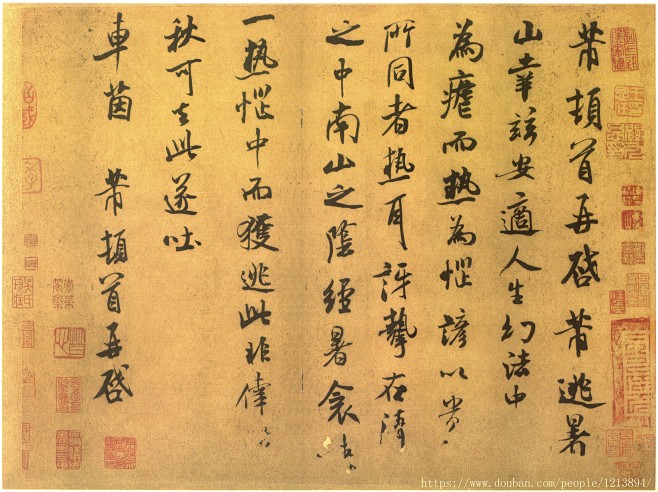 芾頓首再啓芾逃暑
山幸兹安適人生幻法中
為瘧而热為惱諺以貴
所同者热耳訝挈在清
之中南山之陰經暑衾
一热惱中而獲逃此非倖
秋可去此遂吐
車茵 芾頓首再啓
https://www.douban.com/people/1213894/